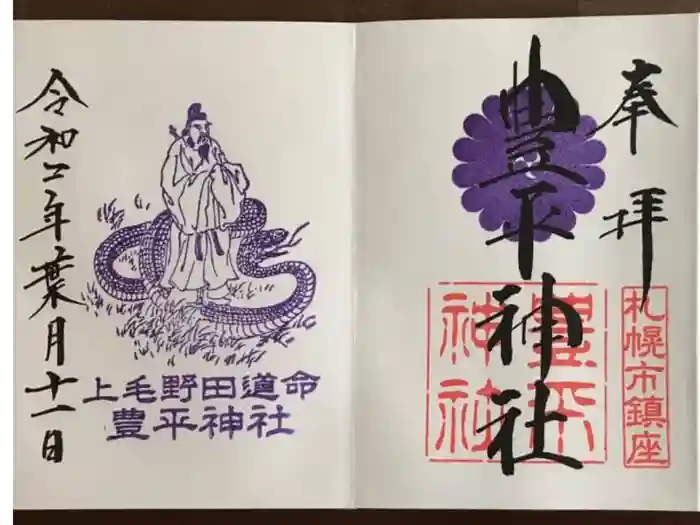 奉拝
豊平神社
豊平神社
札幌市鎮座
上毛野田道命
豊平神社
令和二年葉月十一日